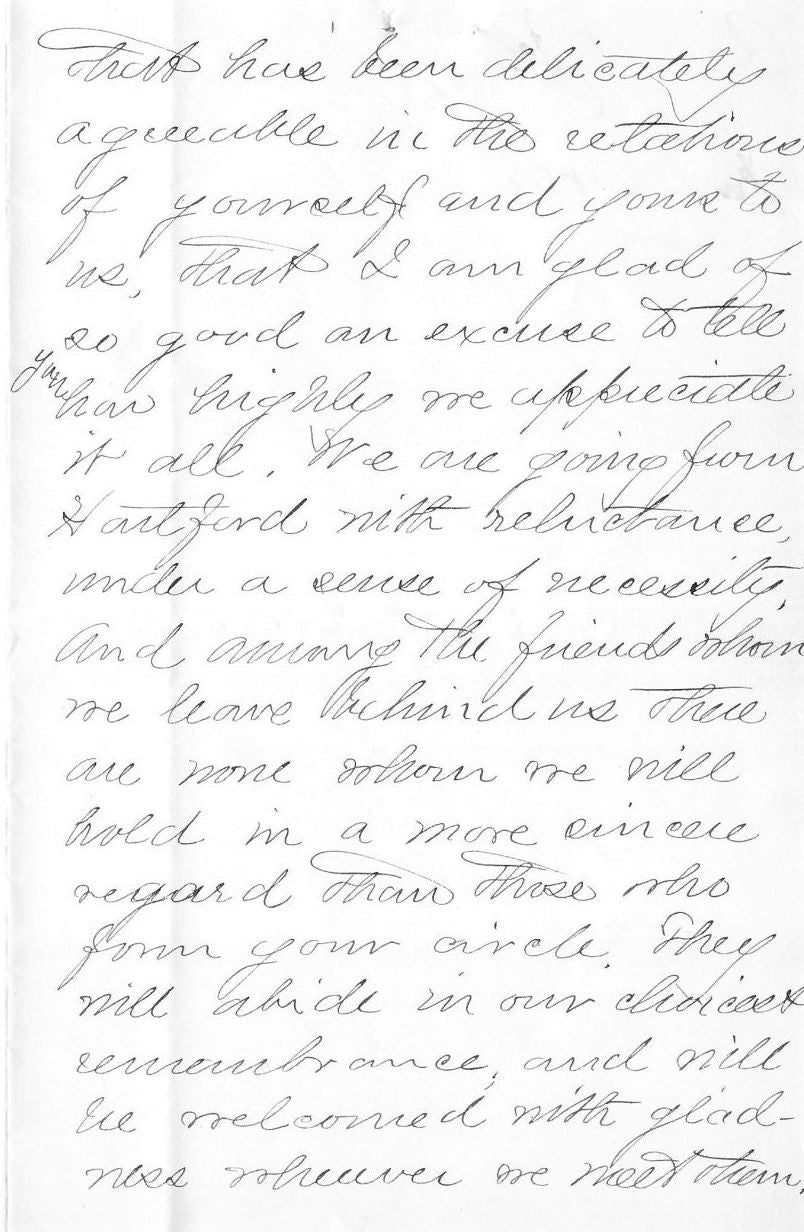 that has been delicately
agreeable in the relations
of yourself and yours to
us, that I am glad of
so good an excuse to tell
you
how highly we appreciate
it all. We are going from
Hartford with reluctance,
under a sense of necessity,
And among the friends whom
we leave behind us there
are none whom we will
hold in a more sincere
regard than those who
form your circle. They
will abide in our choicest
remembrance, and will
be welcomed with glad-
ness wherever we meet them.